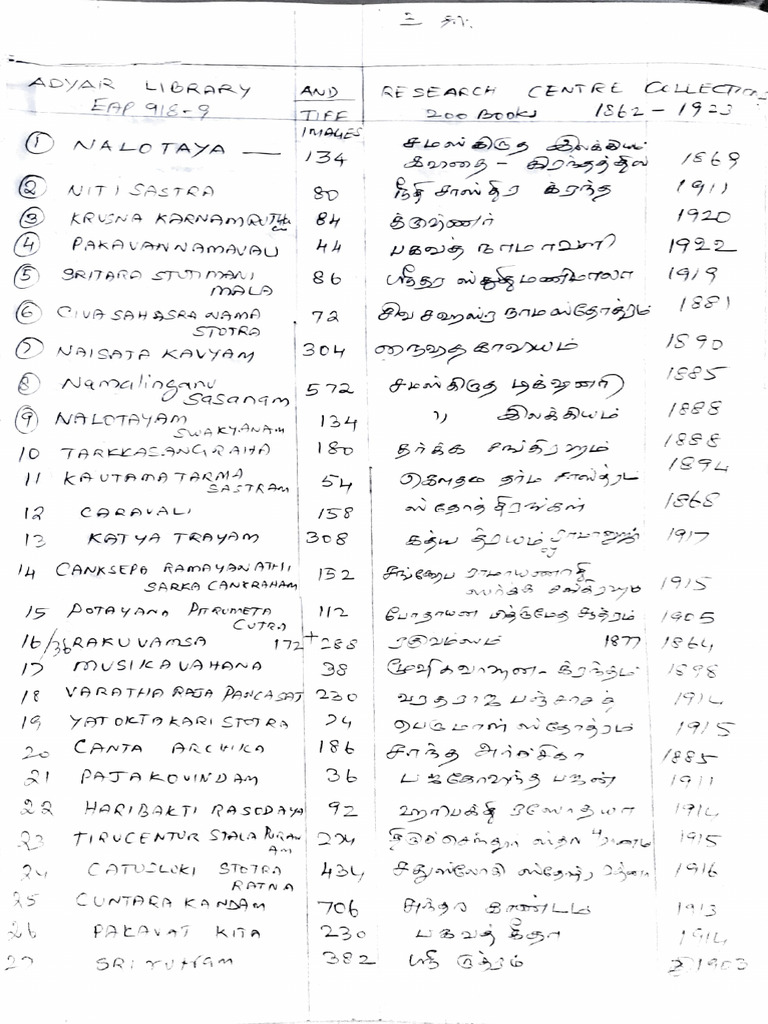 ADYAR LIBRARY AND RESEARCH CENTRE COLLECTION
EAP 918-9 TIFF IMAGES 200 BOOKS 1862 - 1923
① NALOTAYA — 134 சமஸ்கிருத இலக்கியம் 1869
கவிதை - கிரந்தத்தில்
② NITI SASTRA 80 நீதி சாஸ்திர க்ரந்த 1911
③ KRUSNA KARNAMRUTHA 84 1920
④ PAKAVANNAMAVALI 44 பகவத் நாமாவளி 1922
⑤ SRITARA STUTI MANI MALA 86 ஸ்ரீதர ஸ்துதிமணிமாலா 1919
⑥ CIVA SAHASRA NAMA STOTRA 72 சிவ சஹஸ்ர நாம ஸ்தோத்ரம் 1881
⑦ NAISATA KAVYAM 304 நைஷத காவ்யம் 1890
⑧ Namalinganu Sasanam 572 சமஸ்கிருத டிக்ஷனரி 1885
⑨ NALOTAYAM SWAKYANAM 134 " இலக்கியம் 1888
10 TARKKASANGRAHA 180 தர்க்க சங்கிரஹம் 1888
11 KAUTAMA TARMA SASTRAM 54 கௌதம தர்ம சாஸ்த்ரம் 1894
12 CARAVALI 158 ஸ்தோத்திரங்கள் 1868
13 KATYA TRAYAM 308 கத்ய த்ரயம் ராமானுஜர் 1917
14 CANKSEPA RAMAYANATHI SARKA CANKRAHAM 132 சங்க்ஷேப ராமாயணாதி 1915
ஸர்க்க சங்கிரஹம்
15 POTAYANA PITRUMETA CUTRA 112 போதாயன பித்ருமேத சூத்ரம் 1905
16/36 RAKUVAMSA 172 + 288 ரகுவம்ஸம் 1877 1864
17 MUSIKAVAHANA 38 மூஷிகவாஹன - க்ரந்தம் 1898
18 VARATHA RAJA PANCASAT 230 வரதராஜ பஞ்சாசத் 1914
19 YATOKTAKARI STOTRA 24 பெருமாள் ஸ்தோத்ரம் 1915
20 CANTA ARCHIKA 186 சாந்த அர்ச்சிகா 1885
21 PAJAKOVINDAM 36 பஜகோவிந்த பஜன் 1911
22 HARIBAKTI RASODAYA 92 ஹரிபக்தி ரஸோதயா 1914
23 TIRUCENTUR STALA PURANAM 224 திருச்செந்தூர் ஸ்தல புராணம் 1915
24 CATUSLOKI STOTRA RATNA 434 சதுஸ்லோகி ஸ்தோத்ர ரத்னா 1916
25 CUNTARA KANDAM 706 சுந்தர காண்டம் 1913
26 PAKAVAT KITA 230 பகவத் கீதா 1914
27 382 ஸ்ரீ ருத்ரம் 1903